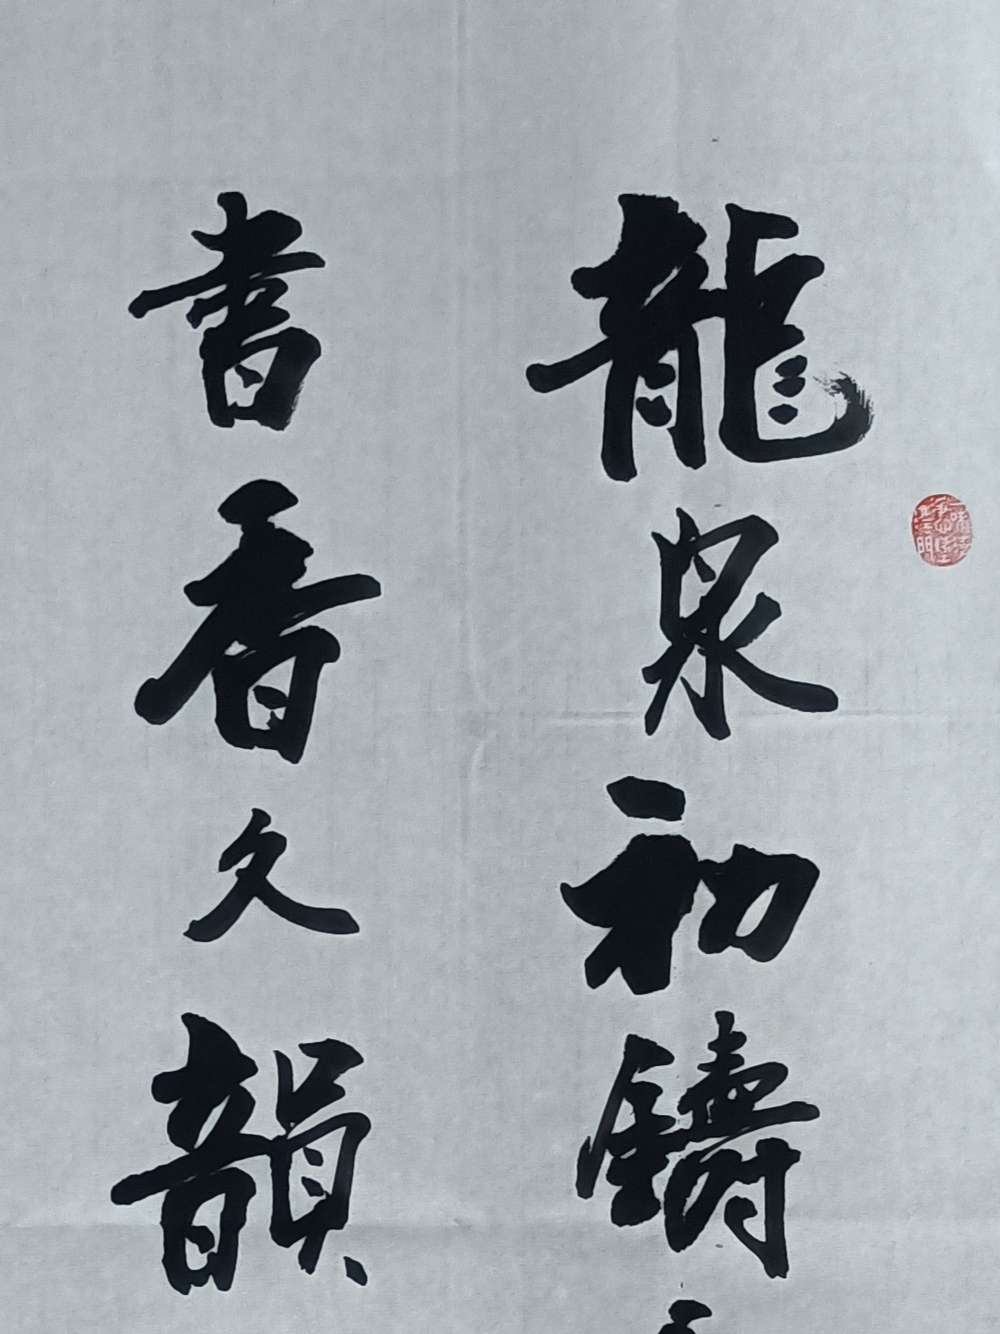 龍泉初鑄
書香久韻